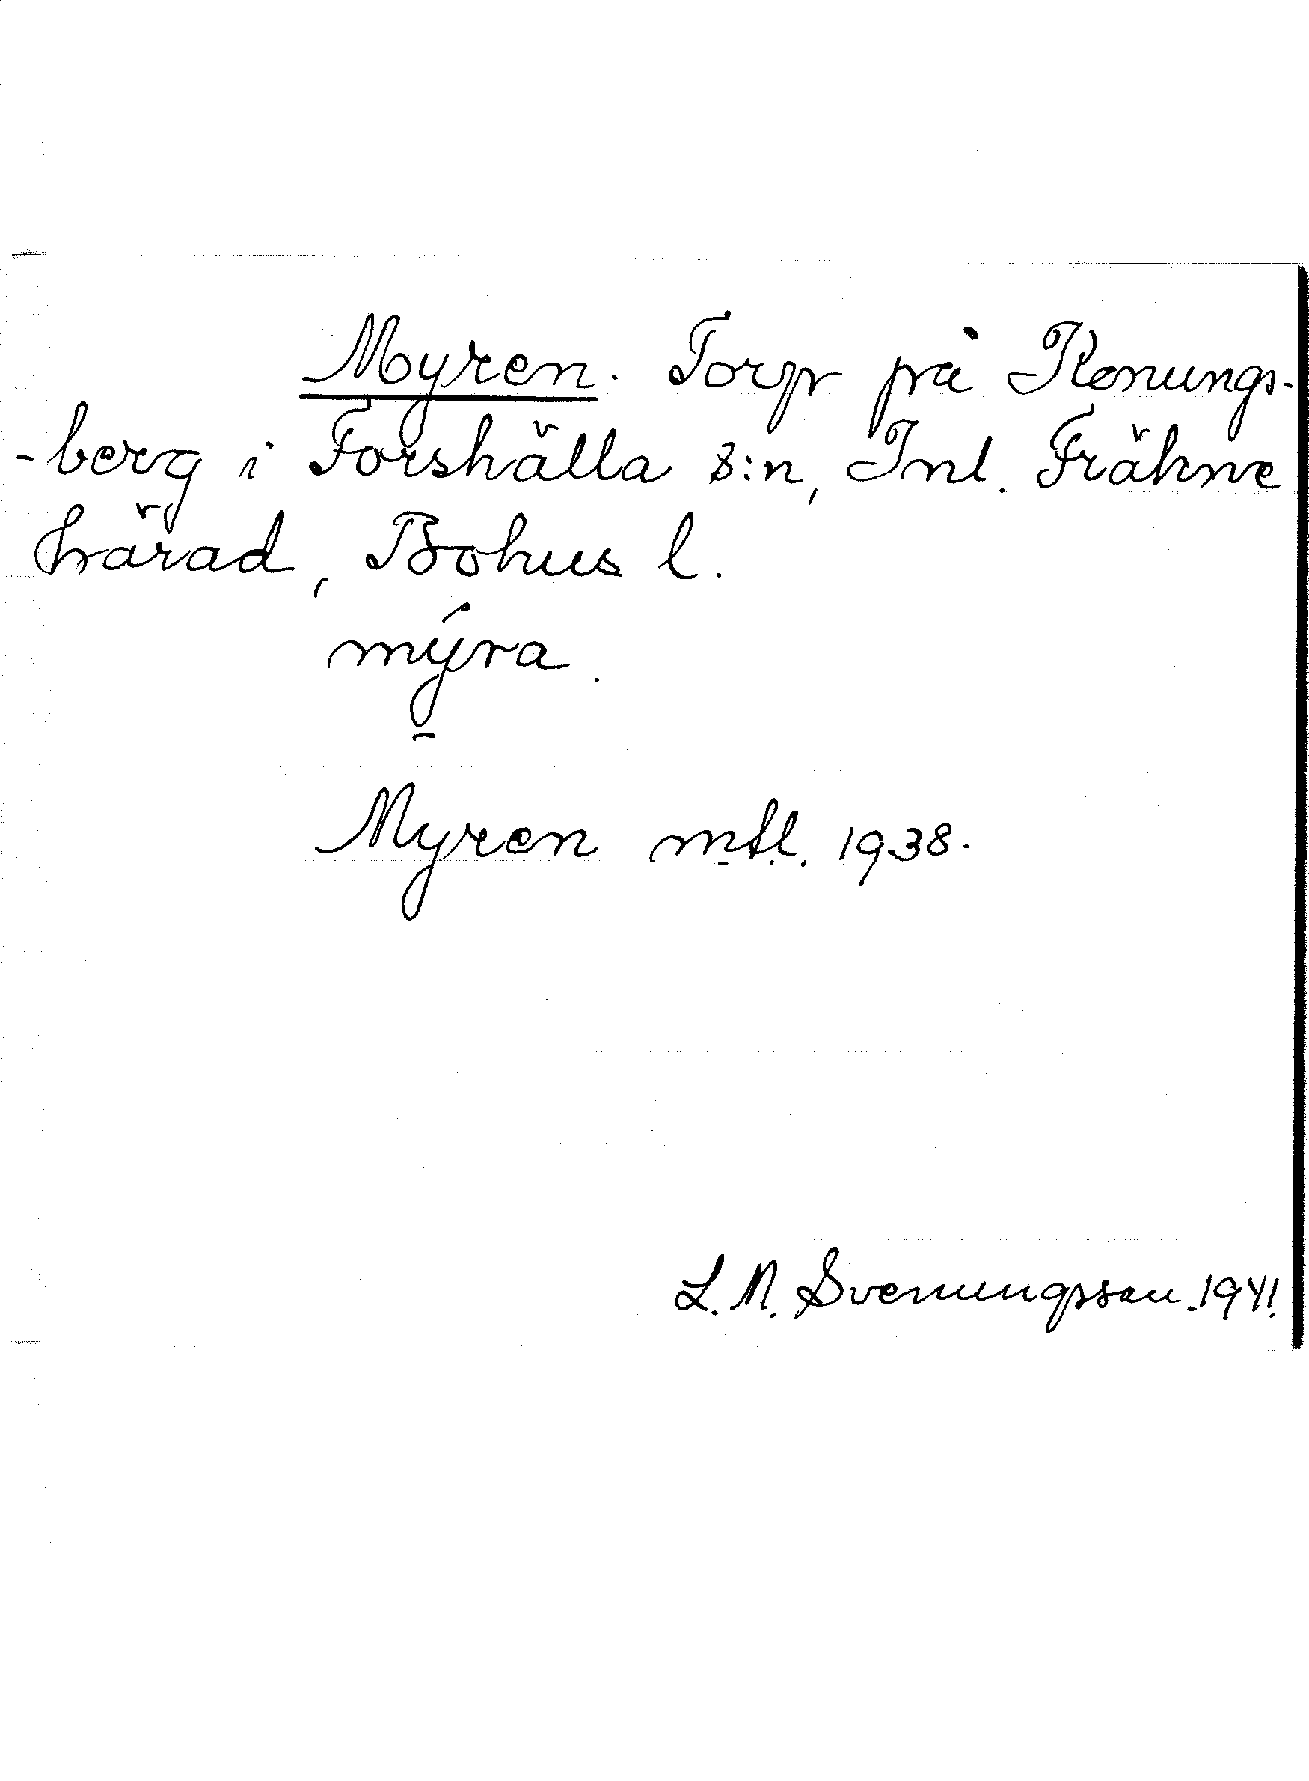 Myren. Torp på Konungs-
-berg i Forshälla s:n, Inl. Fräkne
härad, Bohus l.
mýra.
Myren mtl. 1938.
L. N. Svenungsson. 1941.